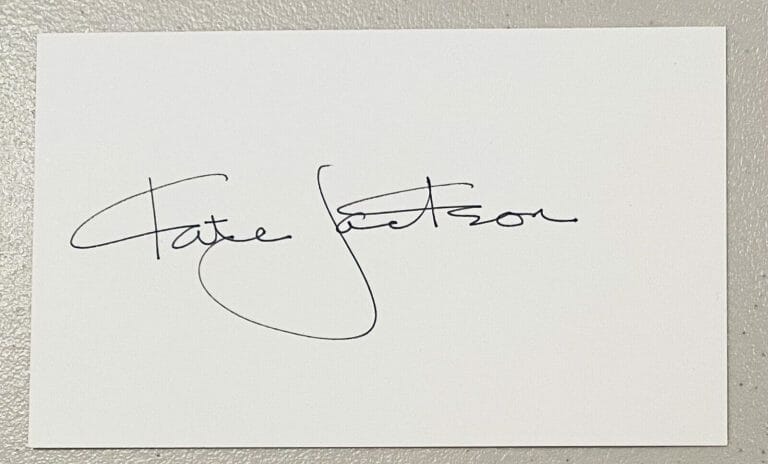 Kate Jackson